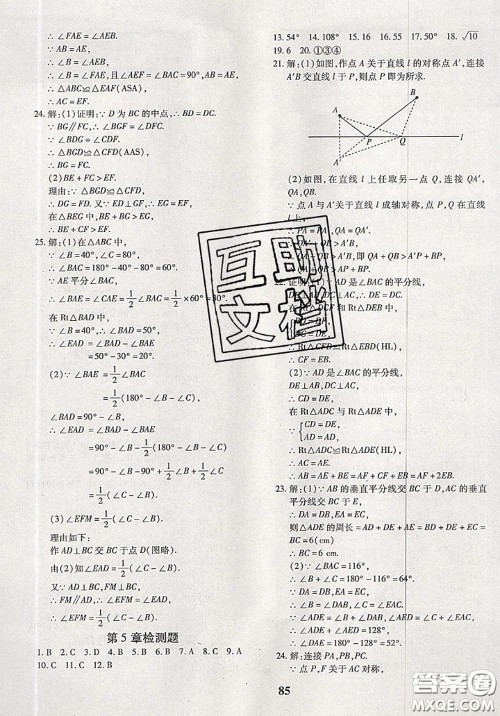 ∴ ∠FEA = ∠AEB.
∵ AB = AE,
∴ ∠B = ∠AEB,
∴ ∠B = ∠FEA, 且∠FEA = ∠BAC = 90°, AB = AE,
∴ △ABC≌△EFA(ASA)
∴ AC = EF.
24. 解: (1)证明: ∵ D 为 BC 的中点, ∴ BD = DC.
∵ BG∥FC, ∴ ∠BGF = ∠DFC.
∵ ∠BDG = ∠CDF.
∴ △BGD≌△CFD(AAS)
∴ BG = FC.
(2)BE + FC > EF.
理由: ∵ △BGD≌△CFD,
∴ DG = FD. 又∵ ED⊥GF, ∴ EG = EF.
∵ BE + BG > EG, ∴ BE + FC > EF.
25. 解: (1)在△ABC 中,
∵ ∠B = 40°, ∠C = 80°,
∴ ∠BAC = 180° - 40° - 80° = 60°.
∵ AE 平分∠BAC,
∴ ∠BAE = 1/2 ∠BAC = 30°.
在 Rt△ABD 中,
∵ ∠B = 40°, ∴ ∠BAD = 50°,
∴ ∠EAD = ∠BAD - ∠BAE
= 50° - 30° = 20°.
(2)∵ ∠BAE = 1/2 ∠BAC
= 1/2 (180° - ∠B - ∠C),
∠BAD = 90° - ∠B,
∴ ∠EAD = ∠BAD - ∠BAE
= 90° - ∠B - 1/2 (180° - ∠B - ∠C)
= 90° - ∠B - 90° + 1/2 ∠B + 1/2 ∠C
= 1/2 (∠C - ∠B).
(3)∠EFM = 1/2 (∠C - ∠B).
理由如下:
作 AD⊥BC 交于点 D(图略).
由(2)知∠EAD = 1/2 (∠C - ∠B).
又∵ AD⊥BC, FM⊥BC,
∴ FM∥AD, ∴ ∠EFM = ∠EAD,
∴ ∠EFM = 1/2 (∠C - ∠B).
第 5 章检测题
1. B 2. C 3. D 4. D 5. B 6. C 7. B 8. C 9. A
10. C 11. C 12. B
13. 54° 14. 90° 15. 19 16. 55° 17. 50° 18. √10
19. 6 20. ①③④
21. 解: (1)如图, 作点 A 关于直线 l 的对称点 A′, 连接
A′B 交直线 l 于点 P, 则点 P 即为所求.
B
A
P Q l
A′
(2)如图, 在直线 l 上任取另一点 Q, 连接
QA, QA′, QB.
∵ 点 A 与 A′关于直线 l 成轴对称, 点 P, Q 在直线
l 上,
∴ PA = PA′, QA = QA′.
QA′ + QB > A′B,
QB > A′B, 即 QA + QB > A′B,
QB > AP + BP.
22. ∠BAC 的平分线,
AC, ∴ DE = DC.
在 Rt△EBD 中,
∴ Rt△CFD≌Rt△EBD(HL),
∴ CF = EB.
(2)∵ AD 是∠BAC 的平分线,
DE⊥AB, DC⊥AC,
∴ CD = DE.
在 Rt△ADC 与 Rt△ADE 中,
∵ { CD = DE,
AD = AD,
∴ Rt△ADC≌Rt△ADE(HL),
∴ AC = AE,
∴ AB = AE + BE = AC + EB = AF + CF + EB
= AF + 2EB.
23. 解: (1)∵ AB 的垂直平分线交 BC 于 D, AC 的垂直
平分线交 BC 于 E,
∴ DA = DB, EA = EC,
则△ADE 的周长 = AD + DE + AE = DB + DE + EC
= BC = 6(cm)
∴ BC = 6 cm.
(2)∵ ∠BAC = 116°,
∴ ∠B + ∠C = 180° - 116° = 64°.
∵ DA = DB, EA = EC,
∴ ∠BAD = ∠B, ∠EAC = ∠C,
∴ ∠BAD + ∠EAC = ∠B + ∠C = 64°,
∴ ∠DAE = ∠BAC - (∠BAD + ∠EAC) = 52°.
24. 解: 连接 PA, PC,
∵ 点 P, F 关于 AC 对称,
85
互助
文档
答案圈
MXQE.COM